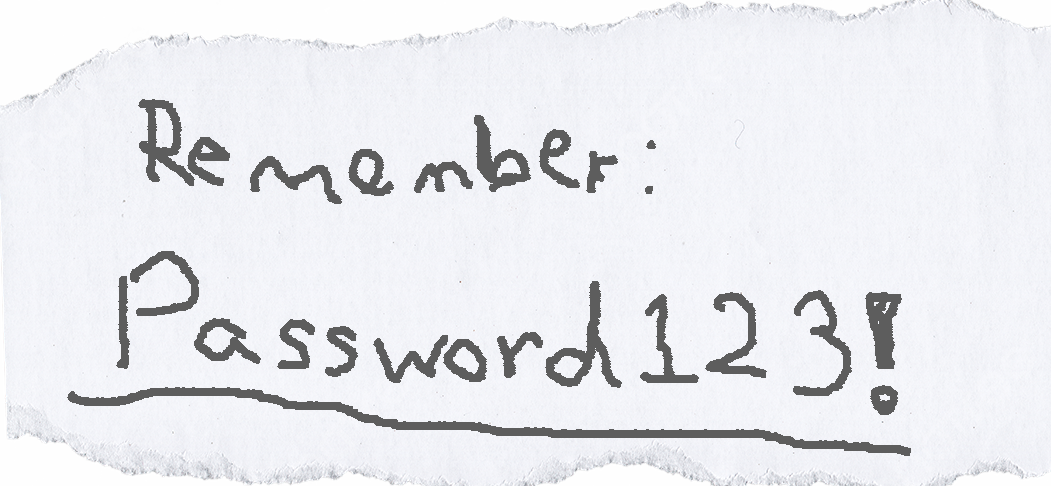 Remember:
Password123!